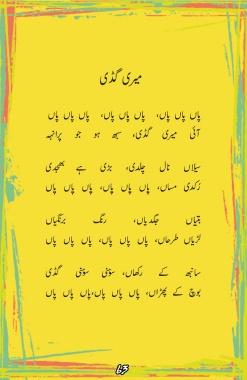 میری گڈی
پاں پاں پاں، پاں پاں پاں، پاں پاں پاں
آئی میری گڈی، سبھ ہو جو پرانہہ
سیلاں نال چلدی، بڑی ہے بھجدی
رُکدی مساں، پاں پاں پاں، پاں پاں پاں
بتیاں جگدیاں، رنگ برنگیاں
لڑیاں طرحاں، پاں پاں پاں، پاں پاں پاں
سانبھ کے رکھاں، سوہنی سوہنی گڈی
بوچ کے پھڑاں، پاں پاں پاں، پاں پاں پاں
63